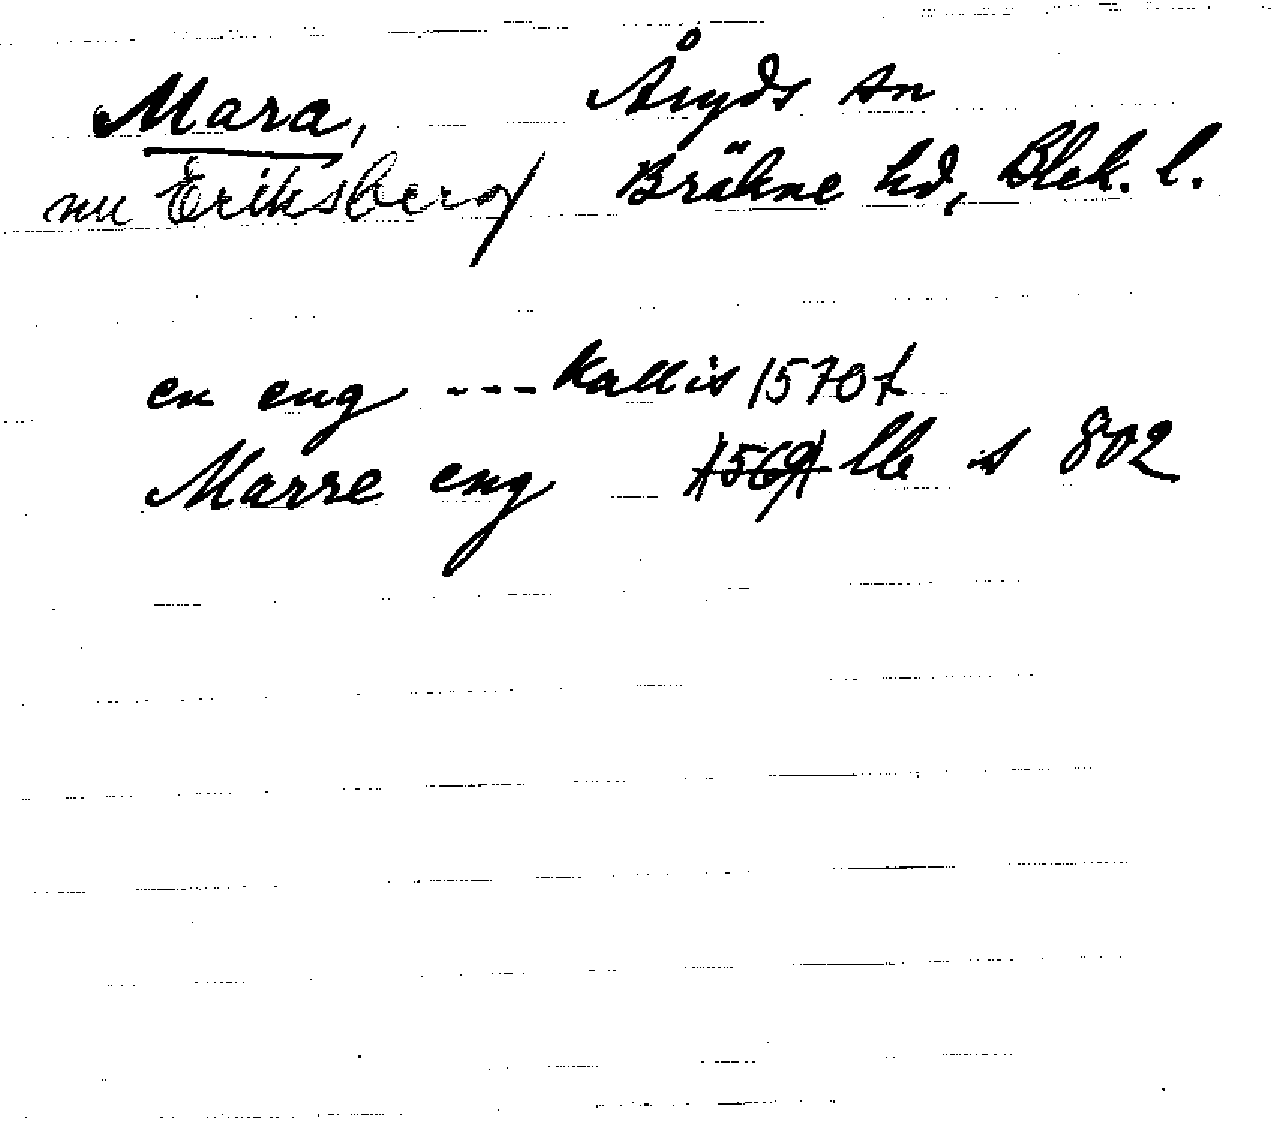 Mara, Åryds sn
nu Eriksberg Bräkne hd, Blek. l.
en eng --- kallis 1570 f
Marre eng lb s 802